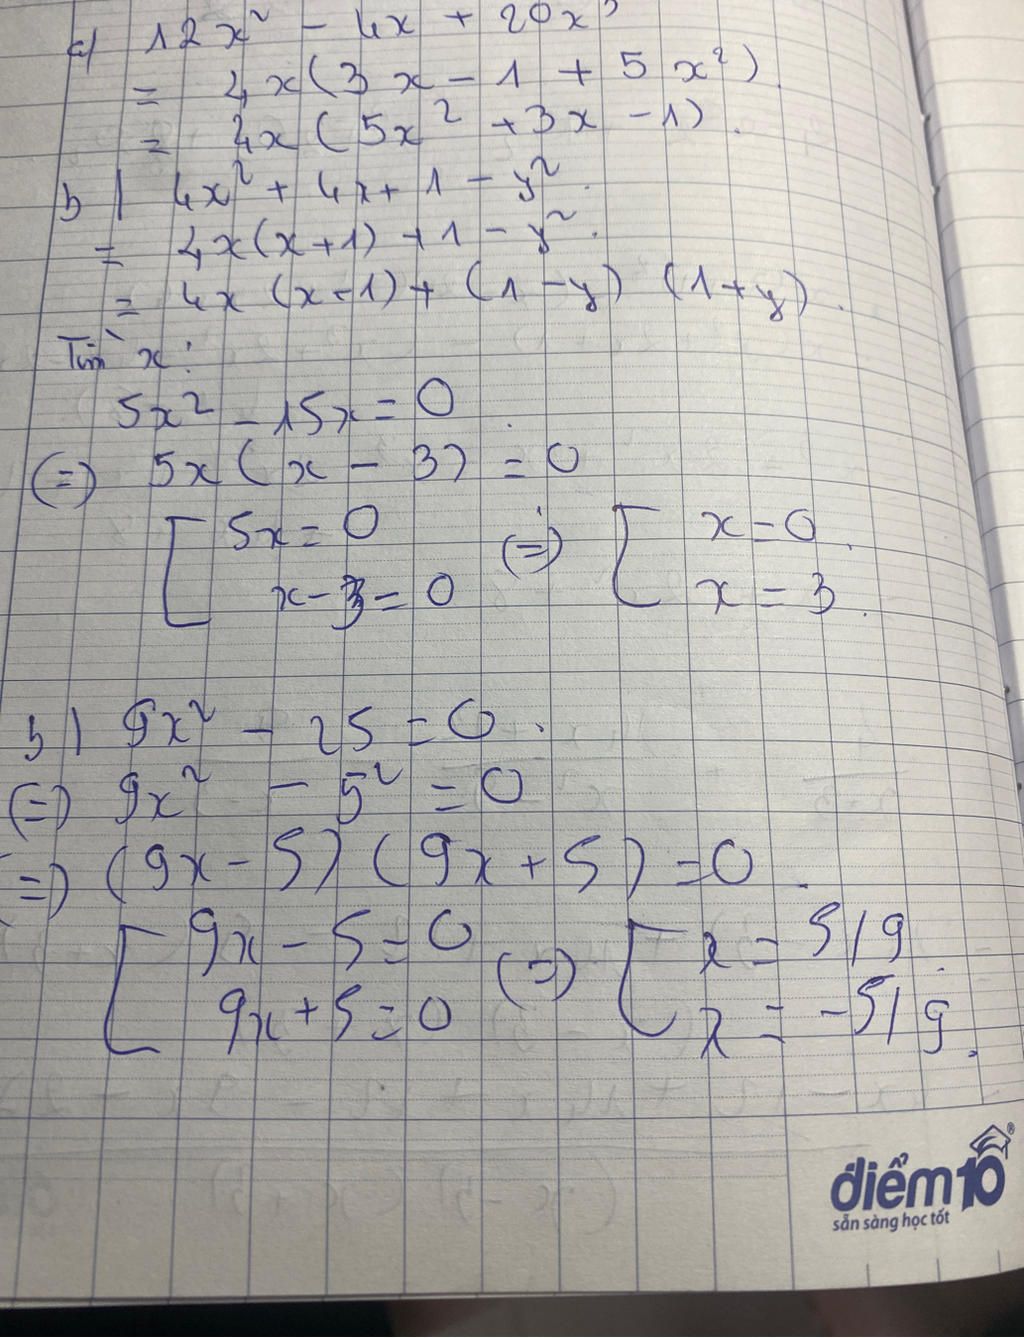 a) 12x² - 4x + 20x³
= 4x(3x - 1 + 5x²)
= 4x(5x² + 3x - 1).
b) 4x² + 4x + 1 - y².
= 4x(x+1) + 1 - y².
= 4x(x+1) + (1-y)(1+y).
Tìm x:
5x² - 15x = 0
(=) 5x(x - 3) = 0
[ 5x = 0 (=) [ x = 0.
x - 3 = 0 x = 3.
b) 9x² - 25 = 0.
(=) 9x² - 5² = 0
(=) (9x - 5)(9x + 5) = 0.
[ 9x - 5 = 0 (=) [ x = 5/9.
9x + 5 = 0 x = -5/9.
điểm10®
sẵn sàng học tốt